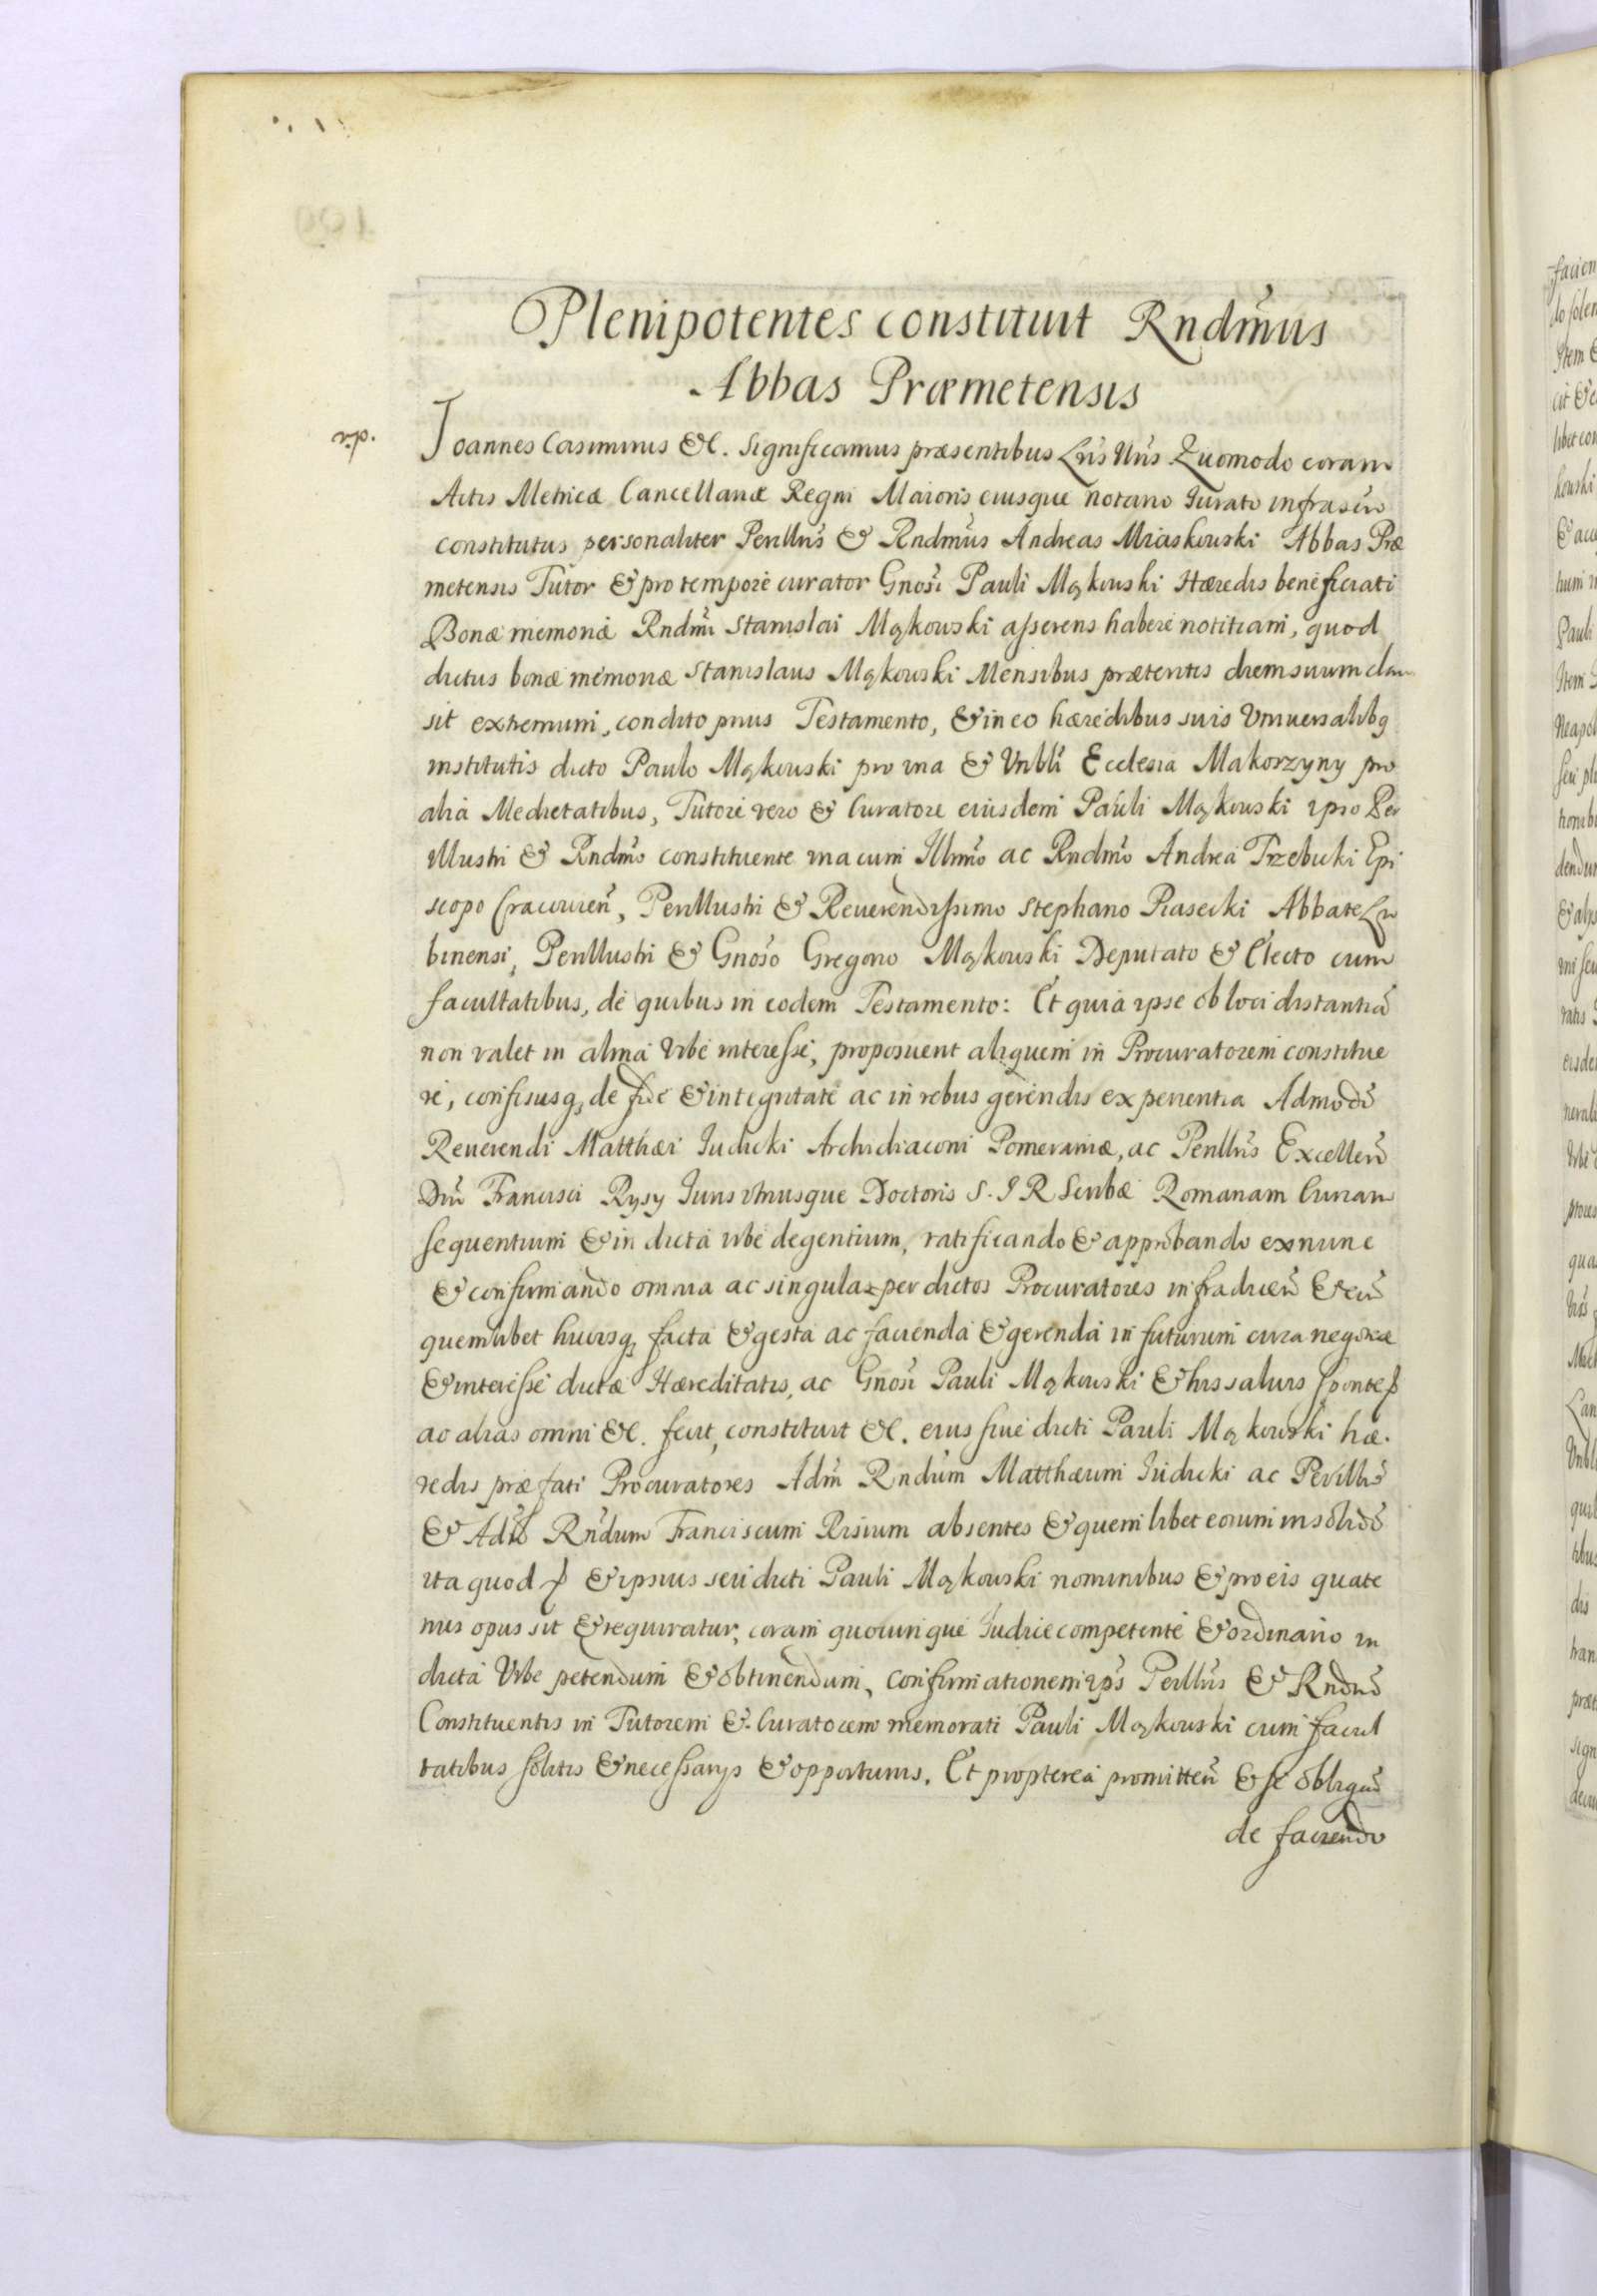 Plenipotentes constituit Rndm̃us
Abbas Præmetensis
Joannes Casimirus &c. Significamus præsentibus Lr̃is Nr̃is Quomodo coram
Actis Metricæ Cancellariæ Regni Maioris eiusque notario Jurato infrascr̃o
constitutus personaliter Perillr̃is & Rndmũs Andreas Miaskowski Abbas Præ
metensis Tutor & pro tempore curator Gnosi Pauli Mąkowski Hæredis beneficiati
Bonæ memoriæ Rndm̃i Stanislai Mąkowski asserens habere notitiam, quod
dictus bonæ memoriæ Stanislaus Mąkowski Mensibus præteritis diem suum clau
sit extremum, condito prius Testamento, & in eo hæredibus suis Vniuersalibq
institutis dicto Paulo Mąkowski pro una & Vnbli Ecclesia Makorzyny pro
alia Medietatibus, Tutore vero & Curatore eiusdem Pauli Mąkowski ipso Per
illustri & Rndm̃o constituente una cum Illm̃o ac Rndm̃o Andrea Trzebicki Epi
scopo Cracouień, Perillustri & Reuerendissimo Stephano Piasecki Abbate Lu
binensi, Perillustri & Gnoso Gregorio Mąkowski Deputato & Electo cum
facultatibus, de quibus in eodem Testamento: Et quia ipse ob loci distantiã
non valet in alma Vrbe interesse, proposuerit aliquem in Procuratorem constitue
re, confisusq, de fide & integritate ac in rebus gerendis experientia Admodũ
Reuerendi Matthæi Judicki Archidiaconi Pomeraniæ, ac Perillr̃is Excelleñ
Dñi Francisci Rysy Juris Vtriusque Doctoris S. J R Scribæ Romanam Curiam
sequentium & in dicta vrbe degentium, ratificando & approbando ex nunc
& confirmando omnia ac singula per dictos Procuratores infradiceñ & eor̃
quemlibet hucusq, facta & gesta ac facienda & gerenda in futurum circa negotia
& interesse dictæ Hæreditatis, ac Gnosi Pauli Mąkowski & his saluis sponte
ac alias omni &c. fecit, constituit &c. eius siue dicti Pauli Mąkowski hæ.
redis præfati Procuratores Adm̃ Rndũm Matthæum Judicki ac Perillr̃ẽ
& Adm̃ Rñdum Franciscum Risium absentes & quemlibet eorum insolidũ
ita quod & ipsius seu dicti Pauli Mąkowski nominibus & pro eis quate
nus opus sit & requiratur, coram quocunque Judice competente & ordinario in
dicta Vrbe petendum & obtinendum, Confirmationem ips̃ Perillr̃is & Rñdmĩ
Constituentis in Tutorem & Curatorem memorati Pauli Mąkowski cum facul
tatibus solitis & necessarys & opportunis. Et propterea promitteñ & se obligañ
de faciendo